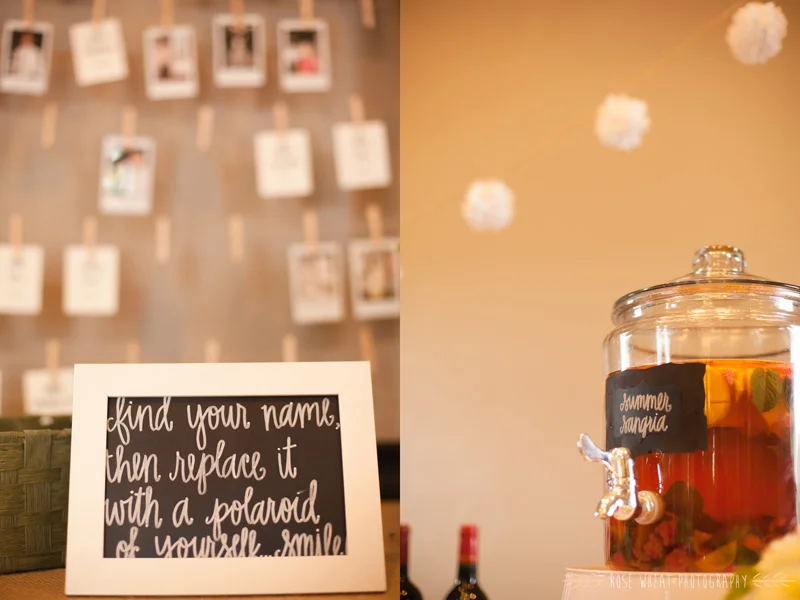 find your name,
then replace it
with a polaroid
of yourself...smile
summer
sangria
ROSE WHEAT PHOTOGRAPHY